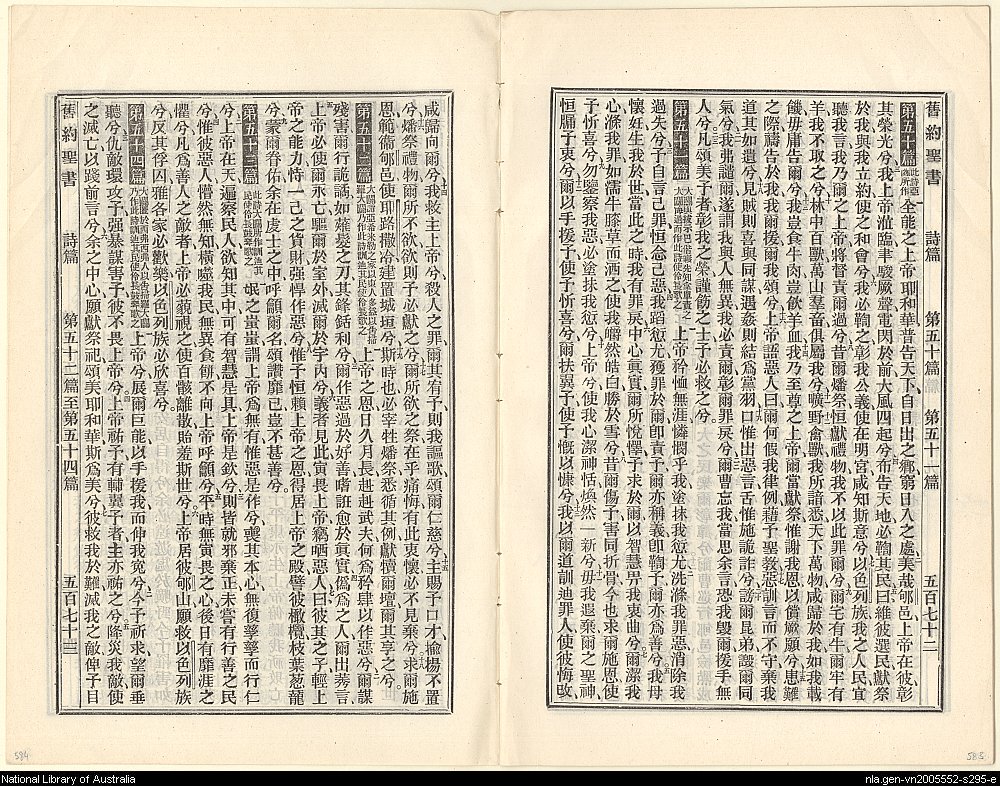 舊約聖書 詩篇 第五十篇 第五十一篇 五百七十二
第五十篇 此詩亞薩所作 全能之上帝耶和華普告天下自日出之鄉窮日入之處美哉郇邑上帝在彼彰
其榮光兮我上帝涖臨聿駿厥聲電閃於前大風四起兮布告天地必鞫其民曰維彼選民獻祭
於我與我立約使之和會兮我必鞫之彰我公義使在明宮咸知斯意兮以色列族我之人民宜
聽我言我乃爾之上帝將督責爾過兮昔爾燔祭恒獻禮物我不以此罪爾兮爾宅有牛爾牢有
羊我不取之兮林中百獸萬山羣畜俱屬我兮曠野禽獸我所諳悉天下萬物咸歸於我如我載
饑毋庸告爾兮我豈食牛肉豈飲羊血我乃至尊之上帝爾當獻祭惟謝我恩以償厥願兮患難
之際禱告於我我爾援爾我頌兮上帝語惡人曰爾何假我律例藉予聖教惡訓言而不守棄我
道其如遺兮見賊則喜與同謀遇姦則結爲黨羽口惟出惡言舌惟施詭詐兮謗爾昆弟讟爾同
氣兮我弗譴爾遂謂我與人無異我必責爾彰爾罪戾兮爾曹忘我當思余言恐我毀爾援手無
人兮凡頌美予者彰我之榮謹飭之士予必救之兮
第五十一篇 上帝矜恤無涯憐憫乎我塗抹我愆尤洗滌我罪惡消除我
過失兮予自言己罪恒念己惡我蹈愆尤獲罪於爾卽責予爾亦稱義卽鞫予爾亦爲善兮我母
懷妊生我於世當此之時我有罪戾中心眞實爾所悅懌予求於爾以智慧畀我衷曲兮爾潔我
心滌我罪如濡牛膝草而洒之使我皭然皓白勝於雪兮昔爾傷予害同折骨今也求爾施恩使
予忻喜兮勿鑒察我惡必塗抹我愆兮上帝使我心潔神恬煥然一新兮毋我遐棄爾之聖神
恒牖于衷兮爾以手援予使予忻喜兮爾扶翼予使予慨以慷兮我以爾道訓迪罪人使彼悔改
咸歸向爾兮我救主上帝兮殺人之罪爾其宥予則我謳歌頌爾仁慈兮主賜予口才揄揚不置
兮燔祭禮物爾所不欲欲則予必獻之兮爾所欲之祭在乎痛悔有此衷懷必不見棄兮求爾施
恩範衞郇邑使耶路撒冷建置城垣兮斯時也必宰牲燔祭悉循其例獻犢爾壇爾其享之兮
第五十二篇 上帝之恩日久月長赳赳武夫何爲矜肆以作惡兮爾謀
殘害爾行詭譎如薙髮之刀其鋒銛利兮爾作惡過於好善嗜誑愈於眞實僞爲之人爾出莠言
上帝必使爾永亡驅爾於室外滅爾於宇內兮義者見此寅畏上帝竊哂惡人曰彼其之子輕上
帝之能力恃一己之貨財強悍作惡兮惟予恒賴上帝之恩得居上帝之殿譬彼橄欖枝葉葱龍
兮蒙爾眷佑余在虔士之中呼籲爾名頌讚靡已豈不甚善兮
第五十三篇 氓之蚩蚩謂上帝爲無有惟惡是作兮喪其本心無復孳孳而行仁
兮上帝在天遍察民人欲知其中可有智慧是具上帝是欽兮則皆就邪棄正未嘗有行善之民
兮惟彼惡人懵然無知橫噬我民無異食餅不向上帝呼籲兮平時無寅畏之心後日有靡涯之
懼兮凡爲善人之敵者上帝必藐視之使百骸離散貽羞斯世兮上帝居彼郇山願救以色列族
兮反其俘囚雅各家必歡樂以色列族必欣喜兮
第五十四篇 上帝兮展爾巨能以手援我而伸我寃兮今予祈求望爾垂
聽兮仇敵環攻予強暴謀害予彼不畏上帝兮上帝祐予有輔翼予者主亦祐之兮降災我敵使
之滅亡以踐前言兮余之中心願獻祭祀頌美耶和華斯爲美兮彼救我於難滅我之敵俾予目
舊約聖書 詩篇 第五十二篇至第五十四篇 五百七十三
584
585
National Library of Australia
nla.gen-vn2005552-s295-e